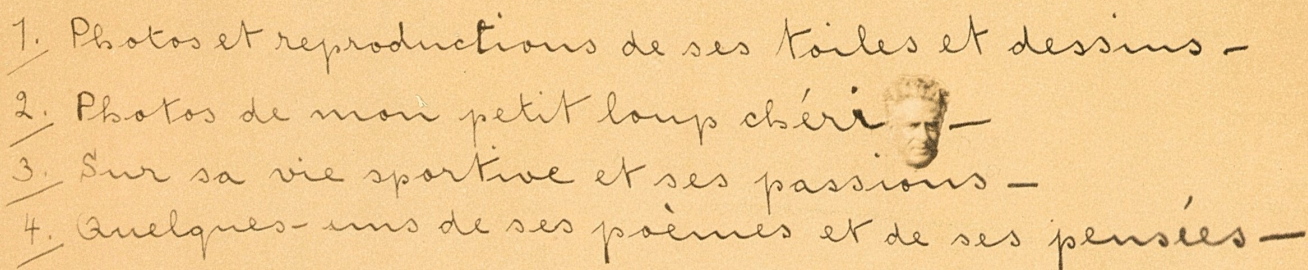 1. Photos et reproductions de ses toiles et dessins –
2. Photos de mon petit loup chéri –
3. Sur sa vie sportive et ses passions –
4. Quelques-uns de ses poèmes et de ses pensées –